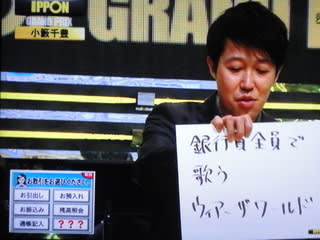 IPPON
GRAND PRIX
小籔千豊
GRAND
銀行員全員で
歌う
ウィアーザワールド
お取引をお選びください
お引出し
お預入れ
お振込み
残高照会
通帳記入
???